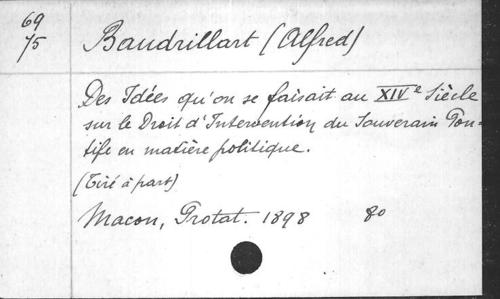 69
75
Baudrillart (Alfred)
Des Idées qu'on se faisait au XIVe Siècle
sur le Droit d'Intervention du Souverain Pon=
tife en matière politique.
(Tiré à part)
Macon, Protat. 1898 8o